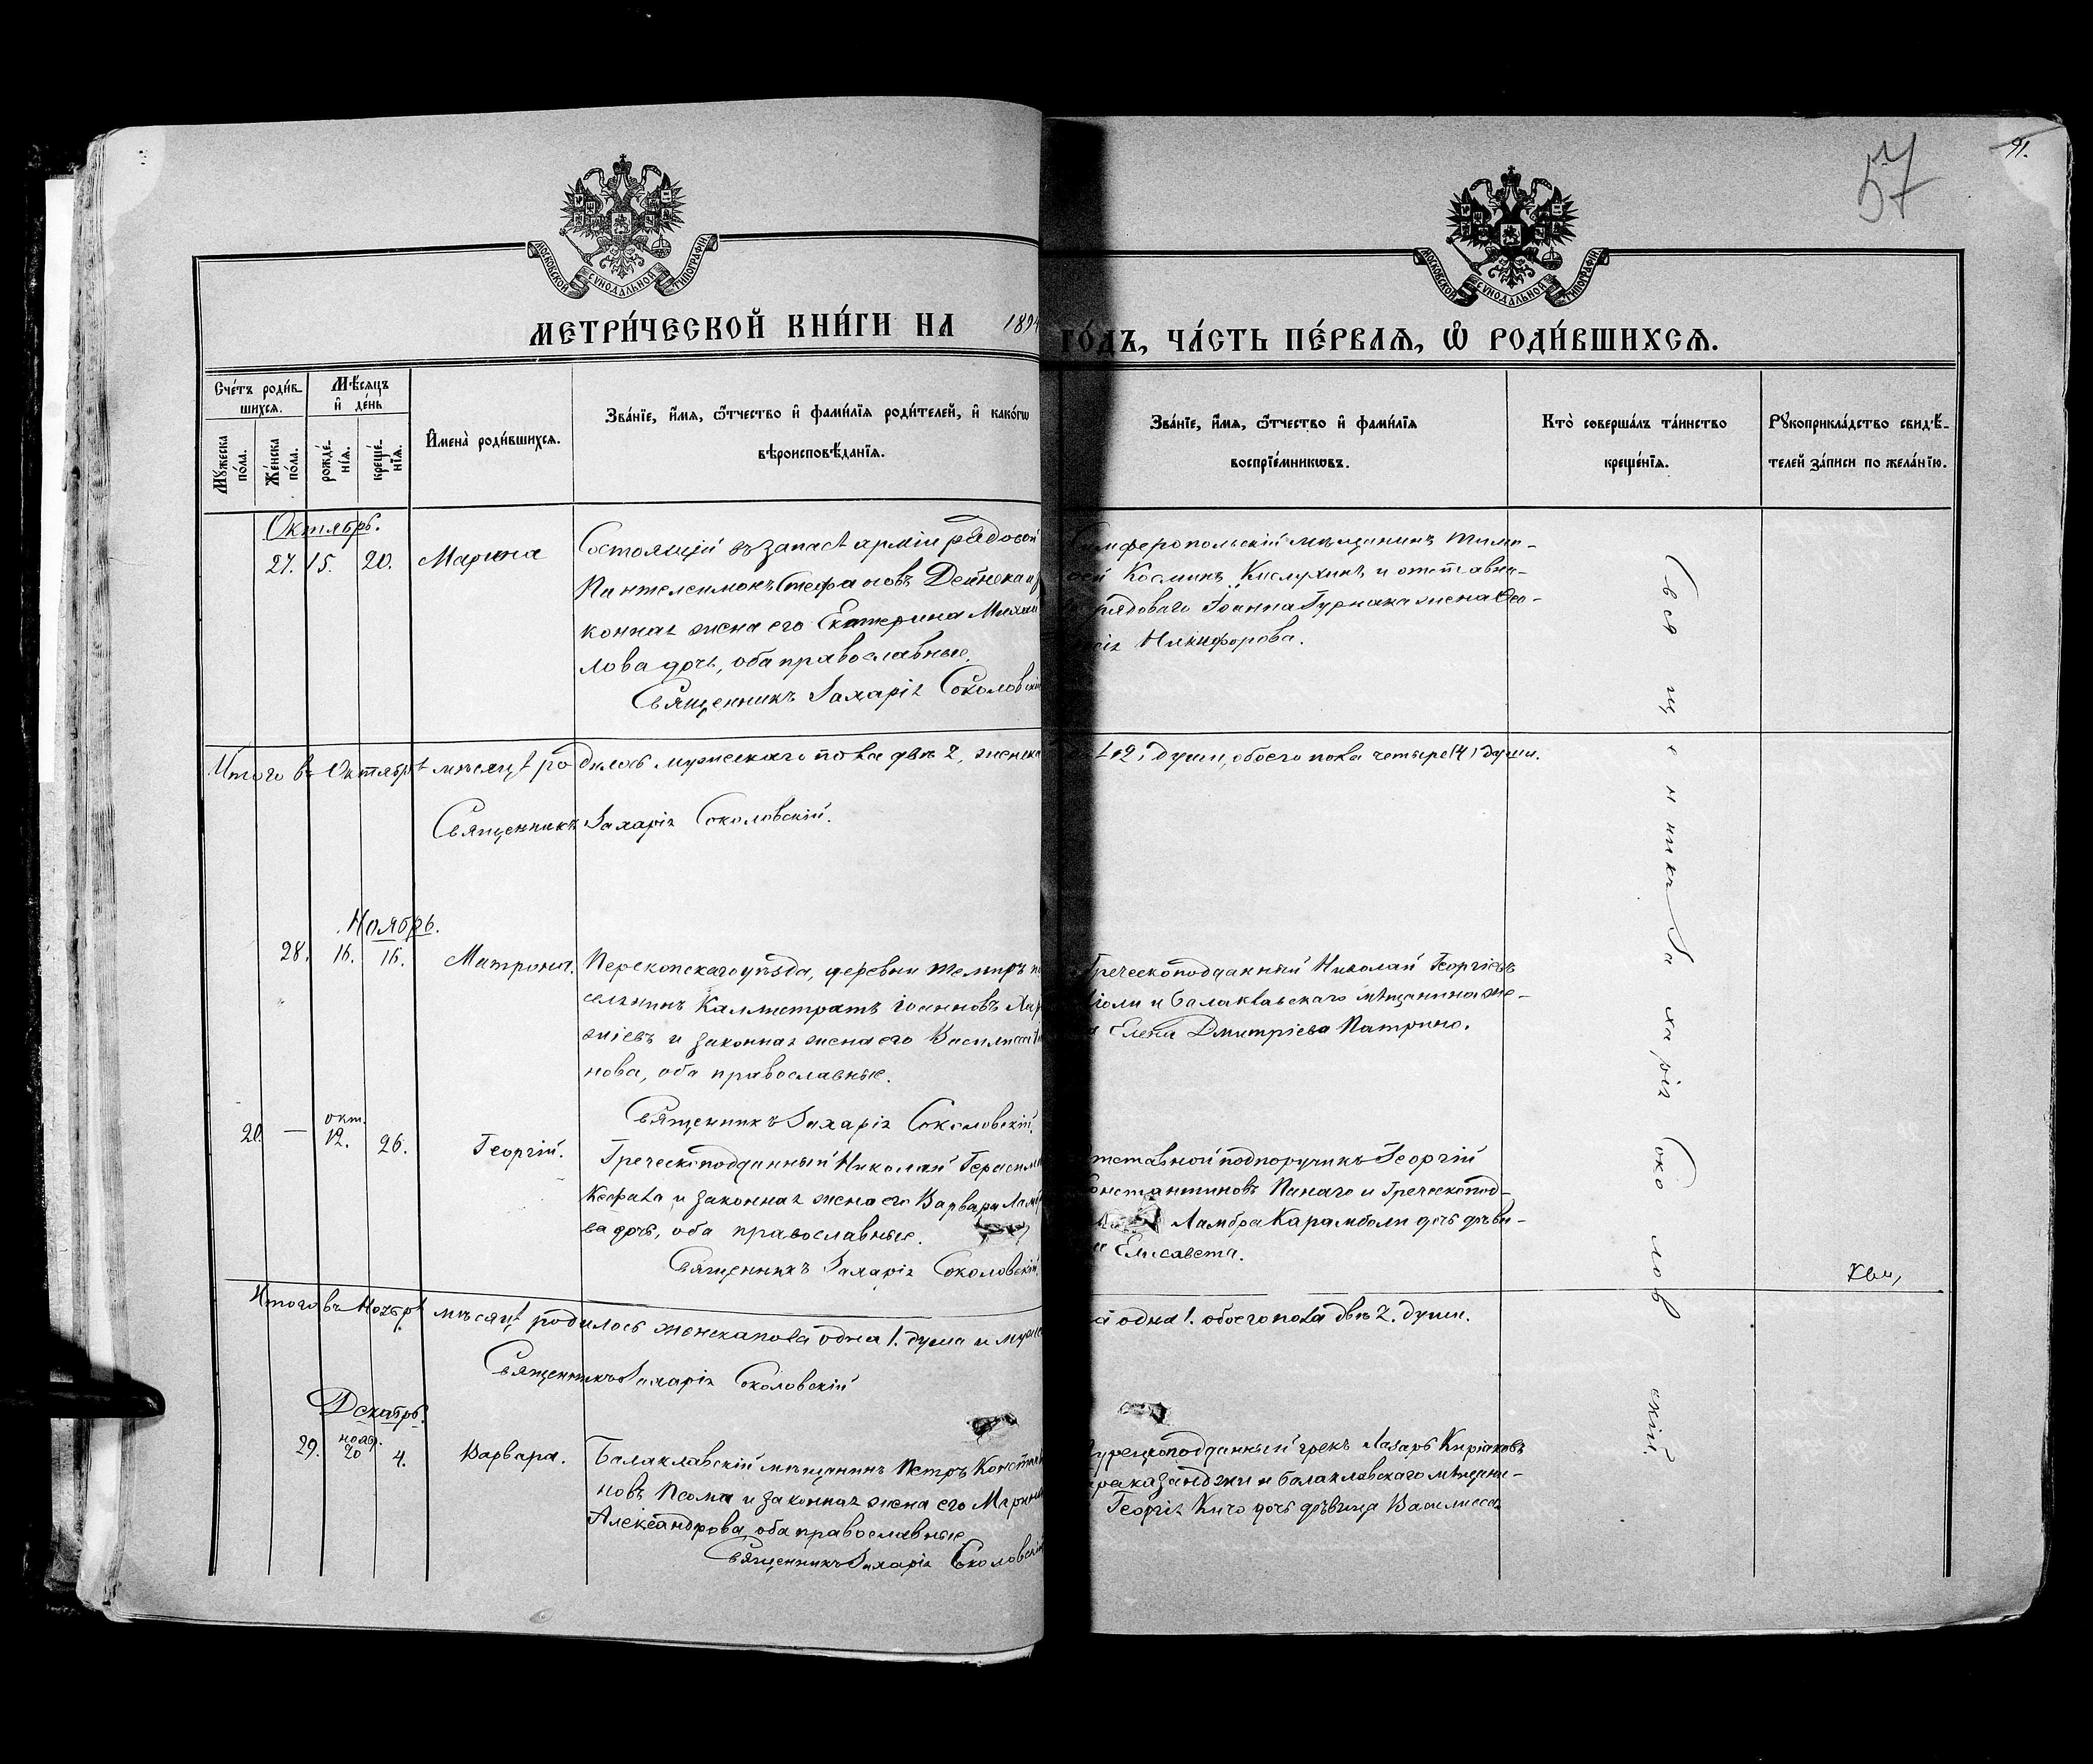 57
91.
МОСКОВСКОЙ СѴНОДАЛЬНОЙ ТИПОГРАФІИ
МОСКОВСКОЙ СѴНОДАЛЬНОЙ ТИПОГРАФІИ
МЕТРИ́ЧЕСКОЙ КНИ́ГИ НА 1894
ГО́ДЪ, ЧА́СТЬ ПЕ́РВАѦ, Ѽ РОДИ́ВШИХСѦ.
Сче́тъ роди́в-
шихсѧ.
Мѣ́сѧцъ
и҆ де́нь
Мꙋ́жеска
по́ла.
Же́нска
по́ла.
рожде́-
нїѧ.
креще́-
нїѧ.
И҆мена̀ роди́вшихсѧ.
Зва́нїе, и҆́мѧ, ѻ҆́тчество и҆ фами́лїѧ роди́телей, и҆ како́гѡ
вѣроисповѣ́данїѧ.
Зва́нїе, и҆́мѧ, ѻ҆́тчество и҆ фами́лїѧ
воспрїе́мникѡвъ.
Кто̀ соверша́лъ та́инство
креще́нїѧ.
Рꙋкоприкла́дство свидѣ́-
телей за́писи по жела́нїю.
Октябрь.
27. 15. 20. Марина
Состоящій въ запасѣ арміи рядовой
Пантелеимонъ Стефановъ Дейнека и з
конная жена его Екатерина Михаи
лова дочь, оба православные.
Священникъ Захарія Соколовскій
Симферопольскій мѣщанинъ Тимо-
Косминъ Кислухинъ и отставна-
рядоваго Іоанна Гурнака жена Ѳео-
Никифорова.
Итого въ Октябрѣ мѣсяцѣ родилось мужескаго пола двѣ 2, женска
2, души, обоего пола четыре (4) души.
Священникъ Захарія Соколовскій.
Ноябрь.
28. 16. 16. Матрона.
Перекопскаго уѣзда, деревни Темиръ по
селянинъ Каллистратъ Іоанновъ Лар
зіевъ и законная жена его Василисса
нова, оба православные.
Священникъ Захарія Соколовскій.
Греческоподданный Николай Георгіевъ
и Балаклавскаго мѣщанина же-
Елена Дмитріева Патрино.
20. — окт. 12. 26. Георгій.
Греческоподданный Николай Герасим
Кефала и законная жена его Варвара Ламб
ва дочь, оба православные.
Священникъ Захарія Соколовскій.
тставной подпоручикъ Георгій
онстантиновъ Пинаго и Греческопод-
Ламбра Карамболи дочь дѣви-
Елисавета.
Итого въ Ноябрѣ мѣсяцѣ родилось женска пола одна 1. душа и муже
одна 1. обоего пола двѣ 2. души.
Священникъ Захарія Соколовскій
Декабрь.
29. нояб. 20 4. Варвара.
Балаклавскій мѣщанинъ Петръ Констан
новъ Псома и законная жена его Марина
Александрова, оба православные.
Священникъ Захарія Соколовскій
урецкоподданный грекъ Лазарь Киріаковъ
и Балаклавскаго мѣщани-
Георгія Кичо дочь дѣвица Василисса
Священникъ Захарія Соколовскій.